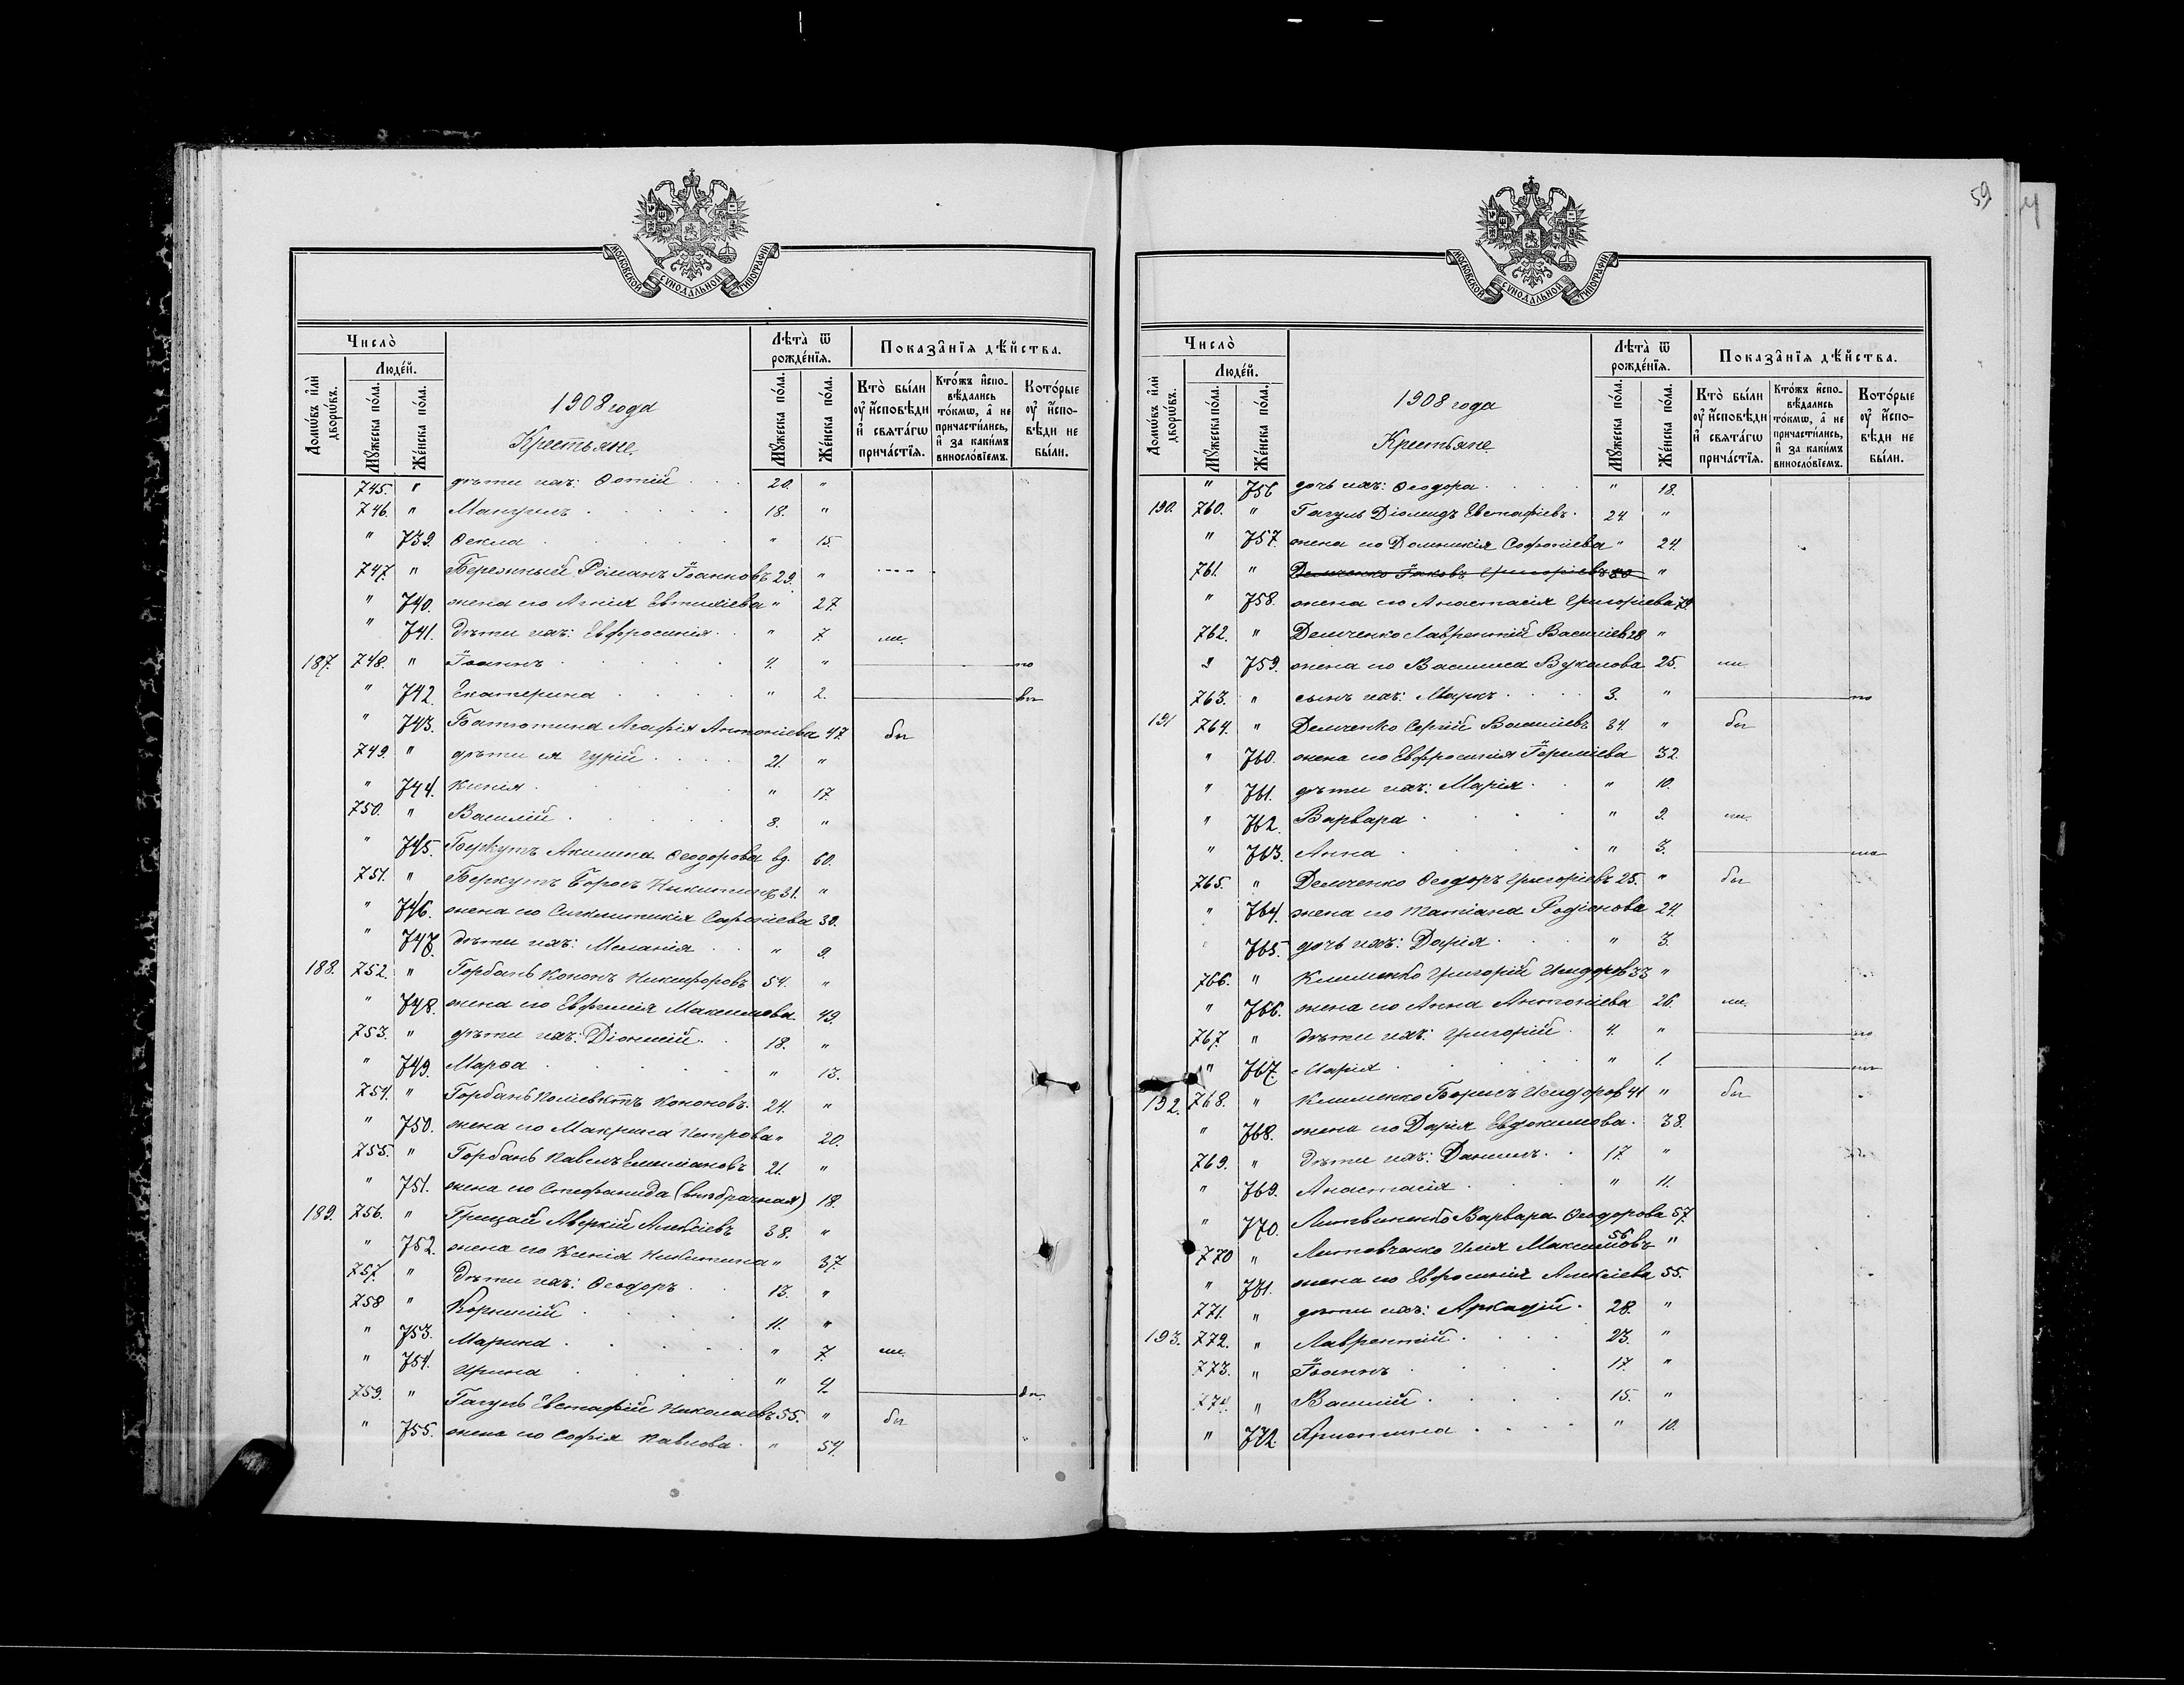 59
МОСКОВСКОЙ СУНОДАЛЬНОЙ ТИПОГРАФІИ
Число̀
Лѣта̀ ѿ рожде́нїѧ.
Показа̑нїѧ дѣ́йства.
Люде́й.
Домѡ́въ и҆лѝ дворѡ́въ.
Мꙋ́жеска по́ла.
Же́нска по́ла.
1908 года
Крестьяне.
Мꙋ́жеска по́ла.
Же́нска по́ла.
Кто̀ бы́ли ᲂу҆ и҆́сповѣди и҆ свѧта́гѡ прича́стїѧ.
Кто́жъ и҆спо-вѣ́дались то́кмѡ, а҆ не причасти́лись, и҆ за каки́мъ виносло́вїемъ.
Кото́рые ᲂу҆ и҆́спо-вѣди не бы́ли.
745. " дѣти ихъ: Фотій 20. "
746. " Мануилъ 18. "
" 739. Ѳекла " 15.
747. " Бережный Романъ Іоанновъ 29. "
" 740. жена его Агнія Евтихіева " 27.
" 741. дѣти ихъ: Евфросинія " 7.
187. 748. " Іоаннъ 4. "
" 742. Екатерина " 2.
" 743. Батютина Агафія Антоніева 47. бы
749. " дѣти ея Гурій 21. "
" 744. Ксенія " 17.
750. " Василій 8. "
" 745. Беркутъ Акилина Ѳеодорова вд. 60.
751. " Беркутъ Борисъ Никитинъ 31. "
" 746. жена его Сигклитикія Софоніева 30.
" 747. дѣти ихъ: Меланія " 9.
188. 752. " Горбань Кононъ Никифоровъ 54. "
" 748. жена его Евфимія Максимова 49.
753. " дѣти ихъ: Діонисій 18. "
" 749. Марѳа " 13.
754. " Горбань Поліевктъ Кононовъ 24. "
" 750. жена его Макрина Петрова " 20.
755. " Горбань Павелъ Емиліановъ 21. "
" 751. жена его Стефанида (внѣбрачная) 18.
189. 756. " Грицай Аверкій Алексіевъ 38. "
" 752. жена его Ксенія Никитина " 37.
757. " дѣти ихъ: Ѳеодоръ 13. "
758 " Корнилій 11. "
" 753. Марина " 7.
" 754. Ирина " 4.
759. " Гагуль Евстафій Николаевъ 55. " бы
" 755. жена его Софія Павлова " 54.
МОСКОВСКОЙ СУНОДАЛЬНОЙ ТИПОГРАФІИ
Число̀
Лѣта̀ ѿ рожде́нїѧ.
Показа̑нїѧ дѣ́йства.
Люде́й.
Домѡ́въ и҆лѝ дворѡ́въ.
Мꙋ́жеска по́ла.
Же́нска по́ла.
1908 года
Крестьяне.
Мꙋ́жеска по́ла.
Же́нска по́ла.
Кто̀ бы́ли ᲂу҆ и҆́сповѣди и҆ свѧта́гѡ прича́стїѧ.
Кто́жъ и҆спо-вѣ́дались то́кмѡ, а҆ не причасти́лись, и҆ за каки́мъ виносло́вїемъ.
Кото́рые ᲂу҆ и҆́спо-вѣди не бы́ли.
" 756 дочь ихъ: Ѳеодора " 18.
190. 760. " Гагуль Діомидъ Евстафіевъ 24. "
" 757. жена его Домникія Софоніева " 24.
761. " Демченко Іаковъ Григоріевъ "
" 758. жена его Анастасія Григоріева
762. " Демченко Лаврентій Василіев 28 "
" 759. жена его Василиса Вуколова 25.
763. " сынъ ихъ: Маркъ 3. "
191 764. " Демченко Сергій Василіевъ 34. " бы
" 760. жена его Евфросинія Іереміева 32.
" 761. дѣти ихъ: Марія " 10.
" 762. Варвара " 9.
" 763. Анна " 3.
765. " Демченко Ѳеодоръ Григоріевъ 25. " бы
" 764. жена его Татіана Родіонова 24.
765. дочь ихъ: Дарія " 3.
766. " Клименко Григорій Исидоров 33 "
" 766. жена его Анна Антоніева 26.
767. " дѣти ихъ: Григорій 4. "
" 767. Марія " 1.
192. 768. " Клименко Борисъ Исидоров 41 " бы
" 768. жена его Дарія Евдокимова 38.
769. " дѣти ихъ: Даниилъ 17. "
" 769. Анастасія " 11.
" 770. Литвиненко Варвара Ѳеодорова 57.
770 " Литовченко Илія Максимовъ 56 "
" 771. жена его Евфросинія Алексіева 55.
771. " дѣти ихъ: Аркадій 28. "
193. 772. " Лаврентій 23. "
773. " Іоаннъ 17. "
774. " Василій 15. "
" 772. Христина " 10.